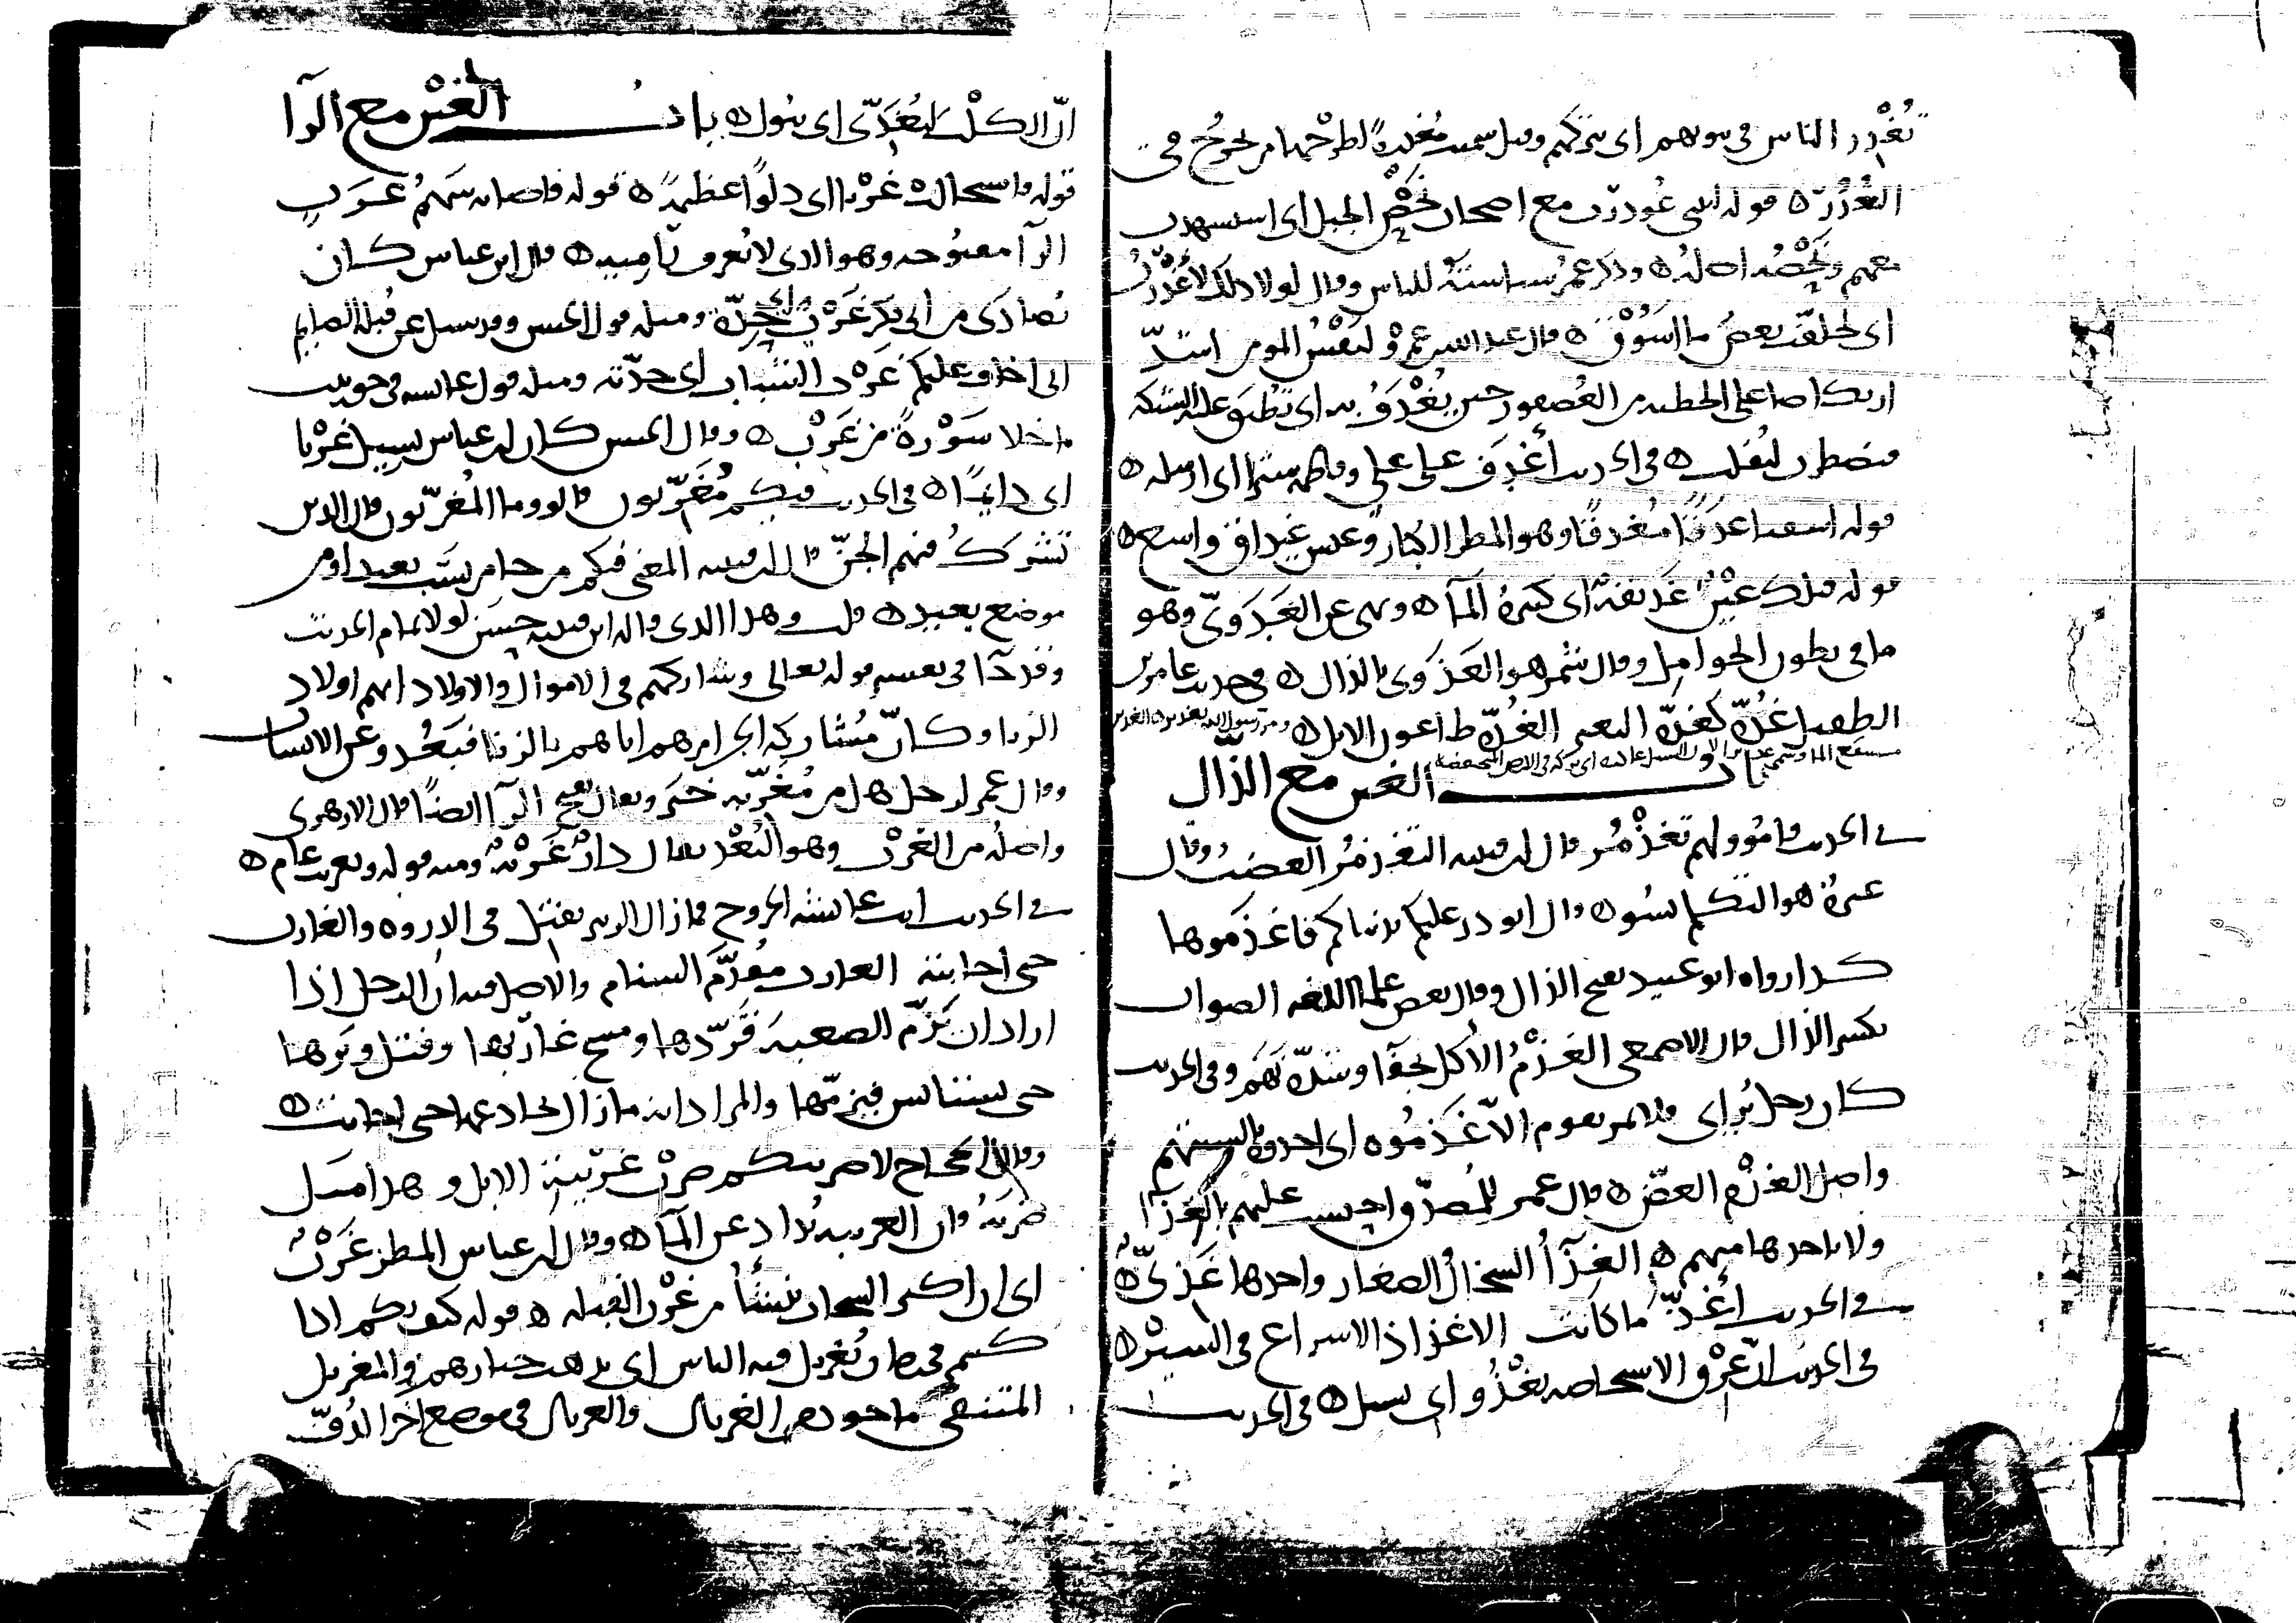 تُغْدِر الناس في بيوتهم اي تتركهم وقيل سميت مُغدِرةً لطرحها من يخرج في
الغُدُر ۞ قوله ليتني غودرت مع اصحاب نُحْصِ الجبل اي استشهدت
معهم ونُحْصُه اصله ۞ وذكر عمر سياسته للناس وقال لولا ذلك لأَغْدَرْتُ
اي لخلفت بعض ما اسُوْق ۞ قال عبد الله بن عمرو لنفْسُ المومن اشدّ
ارتكاضا على الخطيه من العُصفور حين يُغْدَفُ به اي تُطبق عليه الشبكه
فيضطرب ليُفلت ۞ في الحديث أَغْدَفَ على علي وفاطمه سترا اي ارسله ۞
قوله اسقنا غَدَقًا مُغدقًا وهو المطر الكبار وعيش غيداق واسع ۞
قوله فتلك عَيْنٌ غَديقةٌ اي كثيرة المآ ۞ ونهى عن الغَدَوِيّ وهو
ما في بطون الحوامل وقال شمر هو الغَذَوِي بالذال ۞ في حديث عامر بن
الطفيل غُدّة كغُدّة البعير الغُدّة طاعون الابل ۞
باب الغين مع الذال
في الحديث فاتوْا ولهم تغَذْمُر قال ابن قتيبه التغذمُر الغضبُ وقال
غيرهُ هو التكلم بسُوء ۞ قال ابو ذر عليكم بدنياكم فاغذَموها
كذا رواه ابو عبيد بفتح الذال وقال بعض علما اللغه الصواب
بكسر الذال قال الاصمعي الغَذْمُ الاكل بجفآ وشدّة نَهَم وفي الحديث
كان رجل يُرائي فلا يمر بقوم الّا غَذَمُوه اي اخذوه بالسنتهم
واصل الغذْم العضّ ۞ قال عمر للمُصدّق احتسب عليهم بالغِذآ
ولا تاخذها منهم ۞ الغِذَآءُ السخالُ الصغار واحدها غَذِيّ ۞
في الحديث أَغَذّ ما كانت الاغذاذ الاسراع في السيْر ۞
في الحديث انّ عِرْق الاستحاضه يغْذُو اي يسيل ۞ في الحديث
انّ الكلْب ليُغَذّي اي يبُول ۞ باب الغين مع الرآ
قوله فاستحالت غَرْبا اي دلوًا عظيمة ۞ قوله فاصابه سَهمُ غَرَبٍ
الرآ مفتوحه وهو الذي لا يُعرف رَاميه ۞ قال ابن عباس كان
يُصادَى من ابي بَكر غَرْبٌ اي حِدّة ومثله قول الحسن وقد سيل عن قُبلة الصايم
اني اخاف عليكم غَرْب الشباب اي حدّته ومثله قول عايشه في جويريه
ما خلا سَوْرةً من غَرْب ۞ وقال الحسن كان ابن عباس يسيل غَرْبًا
اي دايمًا ۞ في الحديث فيكم مُغَرِّبون قالوا وما المُغرّبون قال الذين
تشْركُ فيهم الجنّ قال ابن قتيبه المعنى فيكم من جا من نسَب بعيد او من
موضع بعيد ۞ قلت وهذا الذي قاله ابن قتيبه حسَن لولا تمام الحديث
وقد جآ في تفسير قوله تعالى وشاركهم في الاموال والاولاد انهم اولاد
الزنا وكانّ مُشاركة الجن امرهم اياهم بالزنا فبَعُدوا عن الانساب
وقال عمر لرجل هل من مُغَرِّبة خبَر ويقال بفتح الرآ ايضًا قال الازهري
واصلُه من الغَرْب وهو البُعْد يقال دارٌ غَرْبةٌ ومنه قوله وتغريب عام ۞
في الحديث ابت عايشه الخروج فما زال الزبير يفتل في الذروه والغارب
حتى اجابته الغارب مُقدّم السنام والاصل فيه ان الرجل اذا
اراد ان يَزُمّ الصعبَة قَرّدها ومسح غاربها وفتل وبَرها
حتى يستانس فيزمّها والمراد انه ما زال يخادعها حتى اجابت ۞
وقال الحجاج لاضربنكم ضرْب غريْبَة الابل وهذا مثل
ضَرَبَهُ فان الغريبه تُذاد عن المآ ۞ وقال ابن عباس المطر غَرْبٌ
اي ان اكثر السحاب ينشأ من غَرْب القبله ۞ قوله كيف بكم اذا
كنتم في زمان يُغربل فيه الناس اي يذهب خيارهم والمغربل
المنتقى ماخوذ من الغربال والغربال في موضع اخر الدُفّ